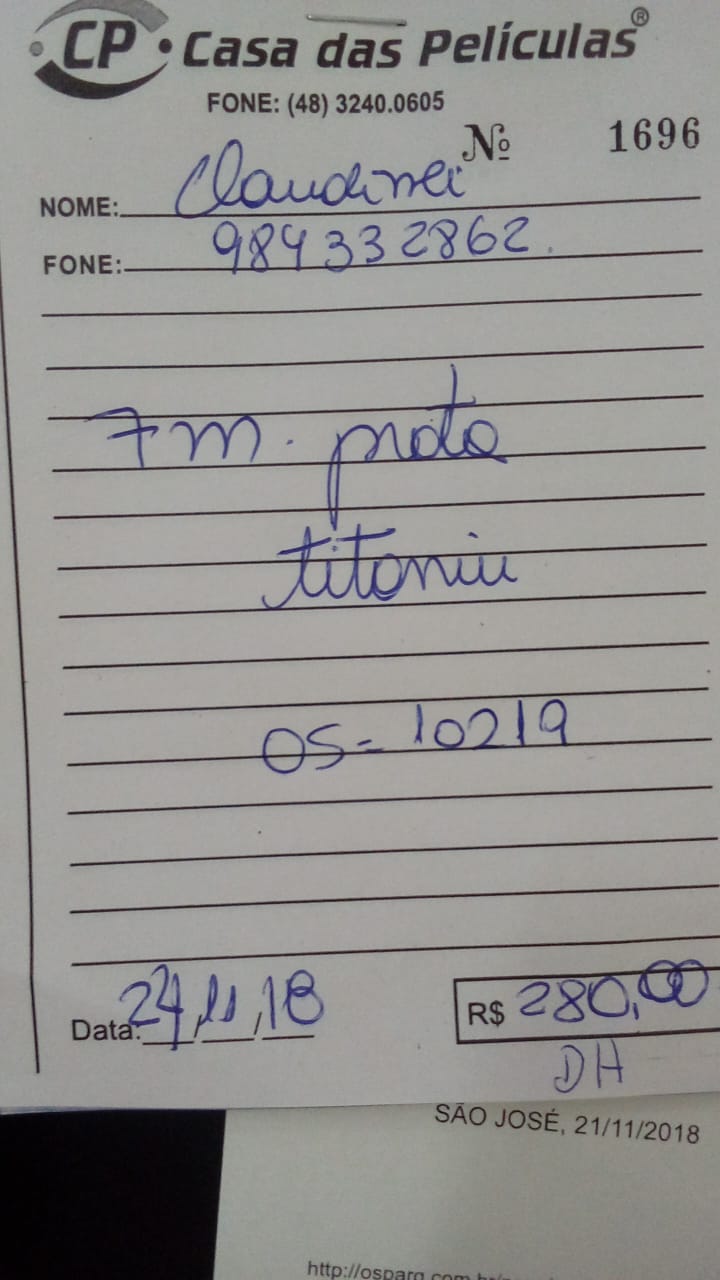 CP • Casa das Películas®
FONE: (48) 3240.0605
Nº 1696
NOME: Claudinei
FONE: 984332862.
7m. prata
titaniu
OS = 10219
Data: 24/11/18
R$ 280,00
DH
SÃO JOSÉ, 21/11/2018